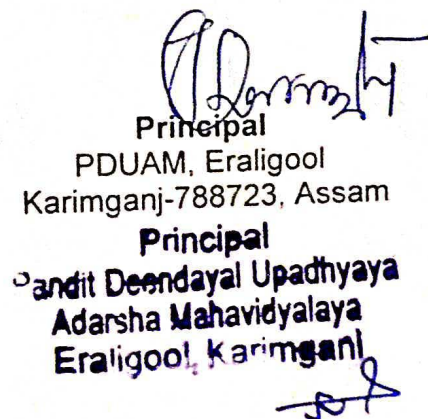 Principal
PDUAM, Eraligool
Karimganj-788723, Assam
Principal
Pandit Deendayal Upadhyaya
Adarsha Mahavidyalaya
Eraligool, Karimganj